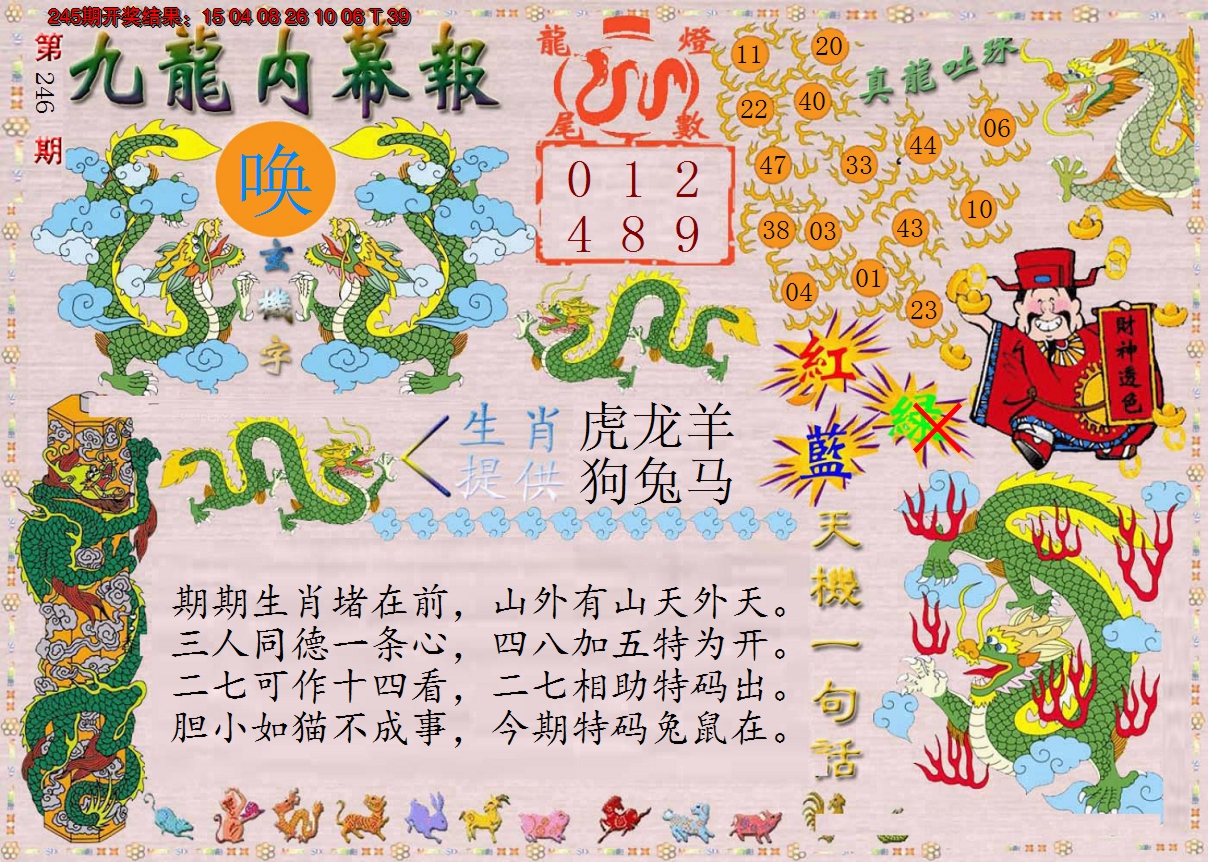 245期开奖结果：15 04 08 26 10 06 T 39
第246期
九龍内幕報
唤
玄機字
龍燈尾數
0 1 2
4 8 9
真龍吐珠
11 20
22 40
47 33 44 06
38 03 43 10
04 01 23
財神透色
紅
綠
藍
生肖 虎龙羊
提供 狗兔马
天機一句话
期期生肖堵在前，山外有山天外天。
三人同德一条心，四八加五特为开。
二七可作十四看，二七相助特码出。
胆小如猫不成事，今期特码兔鼠在。